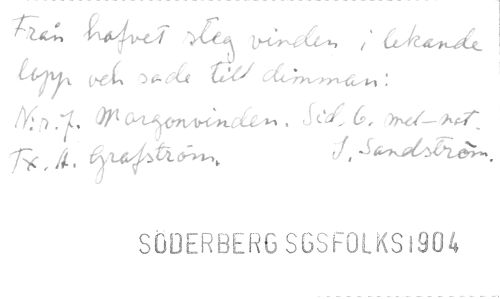 Från hafvet steg vinden i lekande
lopp och sade till dimman:
N:r 7. Morgonvinden. Sid. 6. mel-not.
Tx. A. Grafström. J. Sandström.
SÖDERBERG SGSFOLKS1904